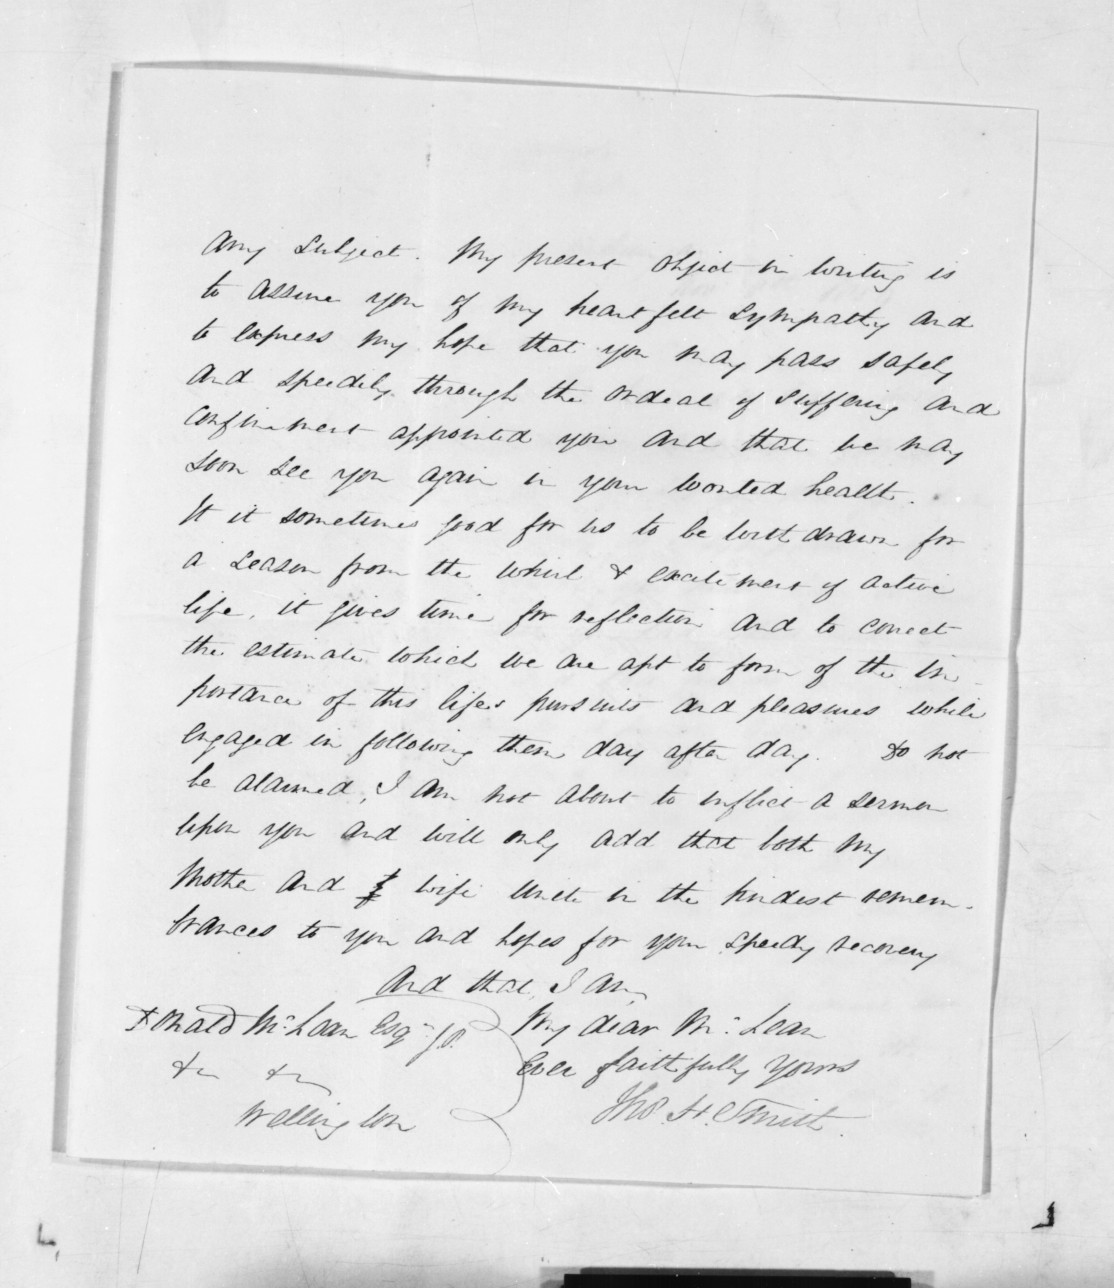 any subject. My present object in writing is
to assure you of my heartfelt sympathy and
to express my hope that you may pass safely
and speedily through the ordeal of suffering and
confinement appointed you and that we may
soon see you again in your wonted health.
It it sometimes good for us to be withdrawn for
a season from the whirl & excitement of active
life, it gives time for reflection and to correct
the estimate which we are apt to form of the im-
portance of this lifes pursuits and pleasures while
engaged in following them day after day. Do not
be alarmed, I am not about to inflict a sermon
upon you and will only add that both my
Mother and wife unite in the kindest remem-
brances to you and hopes for your speedy recovery
And that, I am,
My dear McLean
Ever faithfully yours
Thos. H. Smith.
Donald McLean Esqr. J.P.
&c &c
Wellington